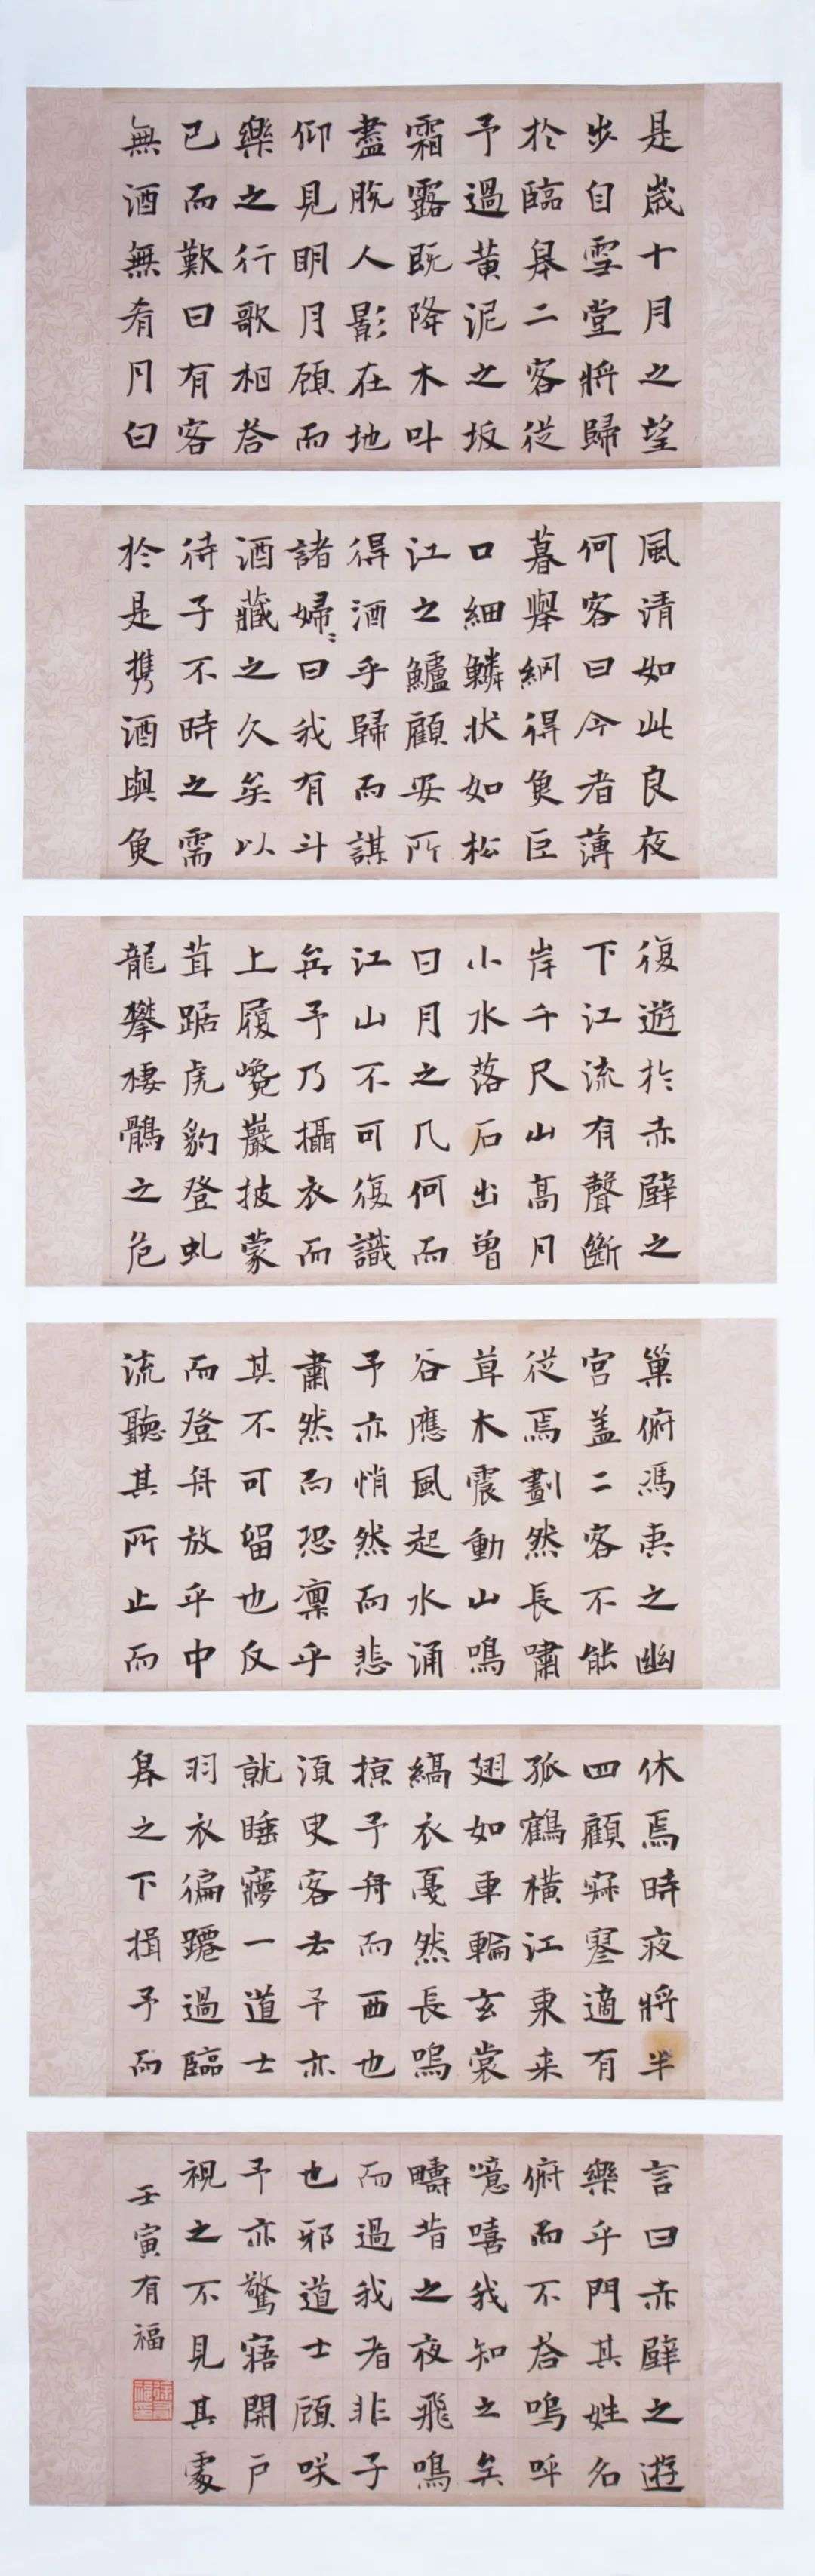 是歲十月之望
步自雪堂將歸
於臨皋二客從
予過黃泥之坂
霜露既降木叶
盡脫人影在地
仰見明月顧而
樂之行歌相答
已而歎曰有客
無酒無肴月白
風清如此良夜
何客曰今者薄
暮舉網得魚巨
口細鱗狀如松
江之鱸顧安所
得酒乎歸而謀
諸婦〻曰我有斗
酒藏之久矣以
待子不時之需
於是攜酒與魚
復遊於赤壁之
下江流有聲斷
岸千尺山高月
小水落石出曾
日月之几何而
江山不可復識
矣予乃攝衣而
上履巉巖披蒙
茸踞虎豹登虬
龍攀棲鶻之危
巢俯馮夷之幽
宮蓋二客不能
從焉劃然長嘯
草木震動山鳴
谷應風起水涌
予亦悄然而悲
肅然而恐凜乎
其不可留也反
而登舟放乎中
流聽其所止而
休焉時夜將半
四顧寂寥適有
孤鶴橫江東来
翅如車輪玄裳
縞衣戛然長鳴
掠予舟而西也
須臾客去予亦
就睡夢一道士
羽衣徧躚過臨
皋之下揖予而
言曰赤壁之遊
樂乎門其姓名
俯而不答嗚呼
噫嘻我知之矣
疇昔之夜飛鳴
而過我者非子
也邪道士顧咲
予亦驚寤開戶
視之不見其處
壬寅有福